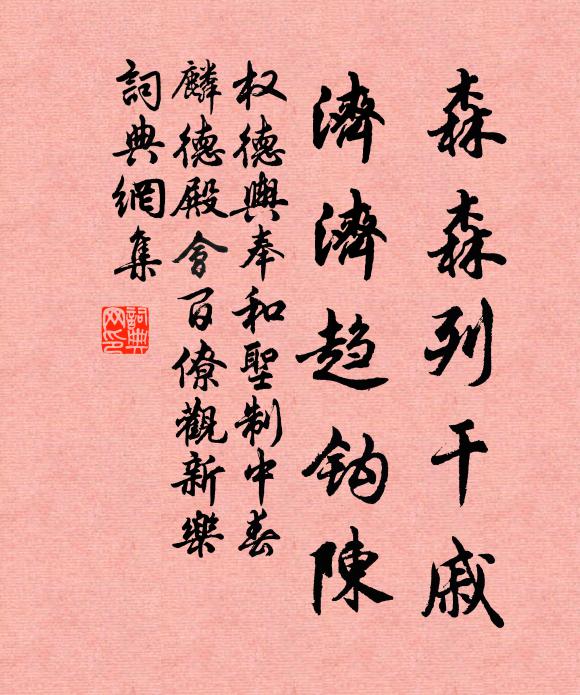 森森列干戚
濟濟趋钩陳
权德輿奉和聖制中春
麟德殿會百僚觀新樂
詞典網集
詞典网印